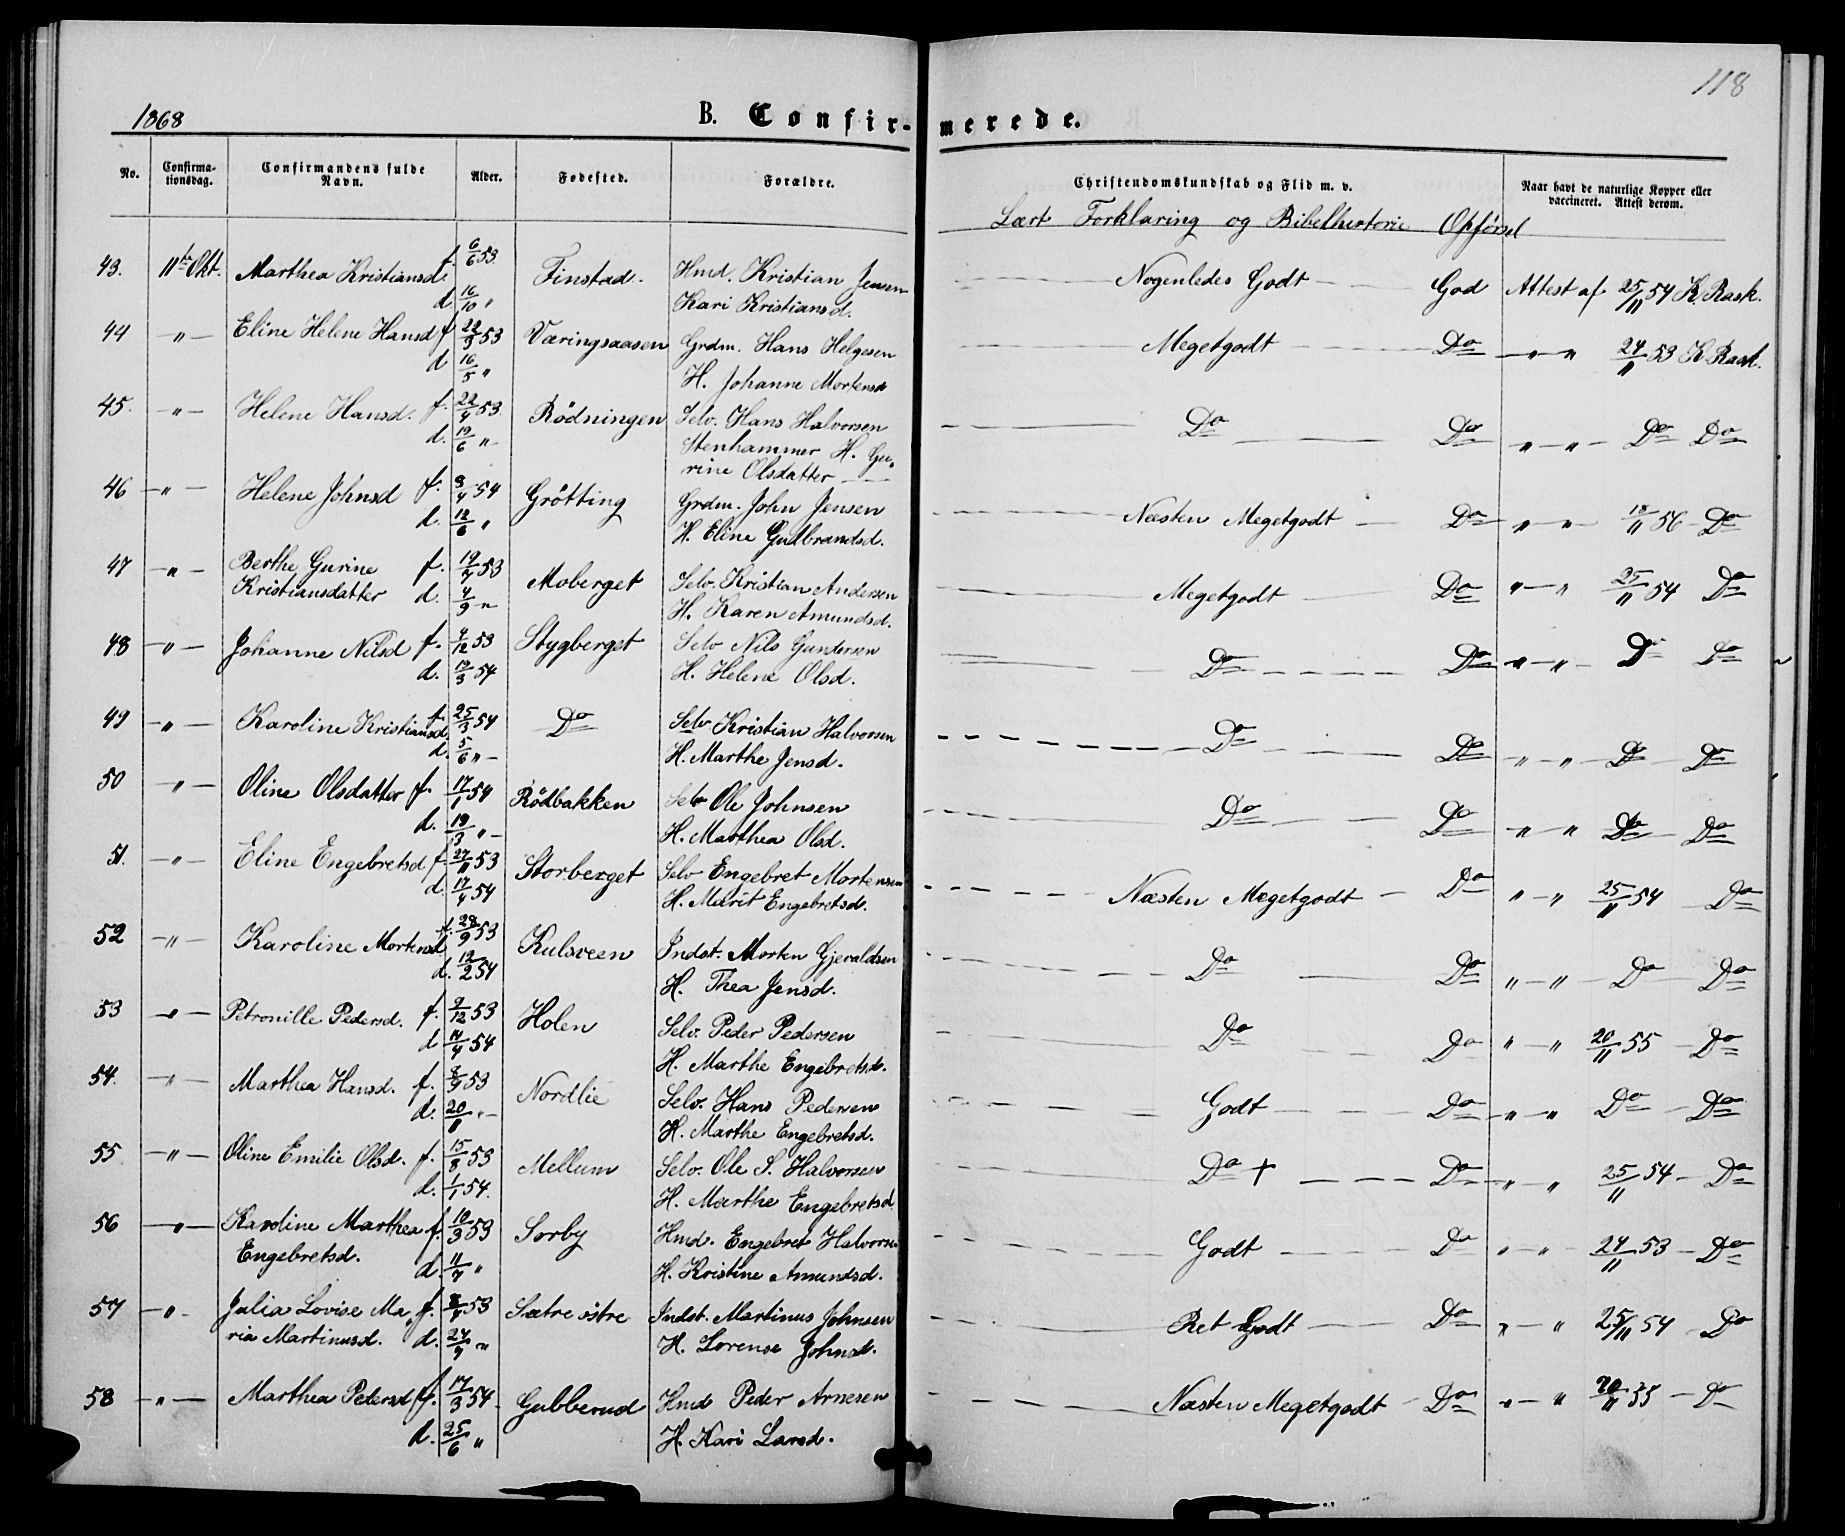 118
1868 B. Confir- merede.
No. Confirma- Confirmandens fulde Alder. Fødested. Forældre. Christendomskundskab og Flid m. v. Naar havt de naturlige Kopper eller
tionsdag. Navn. vaccineret. Attest derom.
Lært Forklaring og Bibelhistorie Opførsel
43. 11te Okt. Marthea Kristiansd. f. 6/6 53 Finstad. Hmd. Kristian Jensen Nogenledes Godt God Attest af 25/11 54 K. Rask.
d. 16/10 " Kari Kristiansd.
44 – " – Eline Helene Hansd f. 22/3 53 Væringsaasen Grdm. Hans Helgesen Megetgodt Do – " – " 24/11 53 K Rask.
d 16/5 " H. Johanne Mortensd
45. – " – Helene Hansd. f. 22/4 53. Rödningen Selv. Hans Halvorsen Do Do " – " – Do Do
d. 19/6 " – Stenhammer H. Gu„
rine Olsdatter
46 – " – Helene Johnsd f. 3/4 54 Grötting Grdm. John Jensen Næsten Megetgodt – Do " – " – 18/11 56 – Do
d. 12/6 " H. Eline Gulbrandsd.
47 – " – Berthe Gurine f. 19/7 53 Moberget Selv. Kristian Andersen Megetgodt Do " – " 25/11 54 Do
Kristiansdatter d. 4/9 " – H. Karen Amundsd.
48 – " – Johanne Nilsd f. 4/12 53 Stygberget Selv Nils Gundersen Do Do " – " – D Do
d. 19/3 54 H. Helene Olsd.
49 – " – Karoline Kristiansd f. 25/3 54 Do Selv Kristian Halvorsen Do Do " – " – Do – Do
d. 5/6 " – H. Marthe Jensd.
50 – " – Oline Olsdatter f. 17/1 54 Rödbakken Selv Ole Johnsen Do Do " – " Do – Do
d. 19/3 " – H. Marthea Olsd.
51. – " – Eline Engebretsd f. 27/11 53 Storberget Selv Engebret Mortensen Næsten Megetgodt – Do " – " 25/11 54 – Do
d. 17/4 54 H. Marit Engebretsd.
52 – " – Karoline Mortensd f. 28/9 53 Kulsveen Indst. Morten Gjevaldsen Do Do " – " – Do – Do
d. 12/2 54 H. Thea Jensd.
53 – " – Petronille Pedersd. f. 9/12 53 Holen Selv. Peder Pedersen Do Do " – " 20/11 55 – Do
d 14/4 54 H. Marthe Engebretsd.
54. – " – Marthea Hansd. f. 8/9 53 Nordlie Selv. Hans Pedersen Godt Do " – " Do – Do
d. 20/11 " – H. Marthe Engebretsd.
55 – " – Oline Emilie Olsd. f. 15/8 53 Mellum Selv. Ole S. Halvorsen Do + Do – " – " 25/11 54 – Do
d. 1/1 54. H. Marthe Engebretsd
56 – " – Karoline Marthea f. 10/3 53 Sorby Hmd. Engebret Halvorsen Godt Do " – " – 24/11 53 – Do
Engebretsd. d. 11/7 " H. Kristine Amundsd.
57 – " – Julia Lovise Ma„ f. 8/4 53 Sætre östre Indst. Martinus Johnsen Ret Godt Do " – " 25/11 54 – Do
ria Martinusd. d. 24/7 " H. Lorense Johnsd.
58 – " – Marthea Pedersd f. 17/3 54 Gubberud Hmd Peder Arnesen Næsten Megetgodt – Do " – " 20/11 55 – Do
d. 25/6 " H. Kari Larsd.